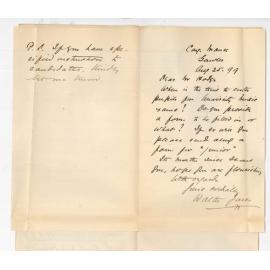 P.S. If you have spe-
cified instructions to
candidates, kindly
let me know.
Cong. Manse
Lawles
Aug 25. 99
Dear Mr Hodge
When is the time to enter
pupils for University Music
exams? Do you provide
a form to be filled in or
what? If so will you
please send along a
form for "Junior"
months since I saw
you, hope you are flourishing
With regards
Yours cordially
Walter